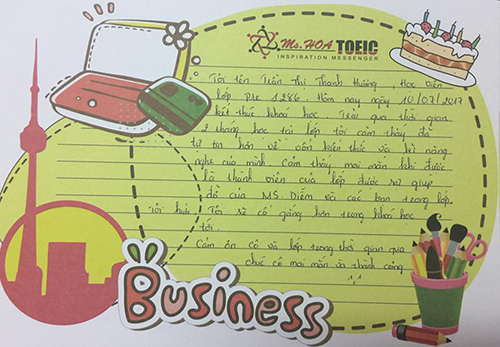 Ms. HOA TOEIC
INSPIRATION MESSENGER
Tôi tên Trần Thị Thanh Hương - Học viên
lớp Pre 1286. Hôm nay ngày 10/07/2017
kết thúc khoá học. Trải qua thời gian
2 tháng học tại lớp tôi cảm thấy đã
tự tin hơn về vốn kiến thức và kĩ năng
nghe của mình. Cảm thấy may mắn khi được
là thành viên của lớp được sự giúp
đỡ của MS. Diễm và các bạn trong lớp.
Tôi hứa: Tôi sẽ cố gắng hơn trong khoá học
tới.
Cảm ơn cô và lớp trong thời gian qua
chúc cô may mắn và thành công
Business